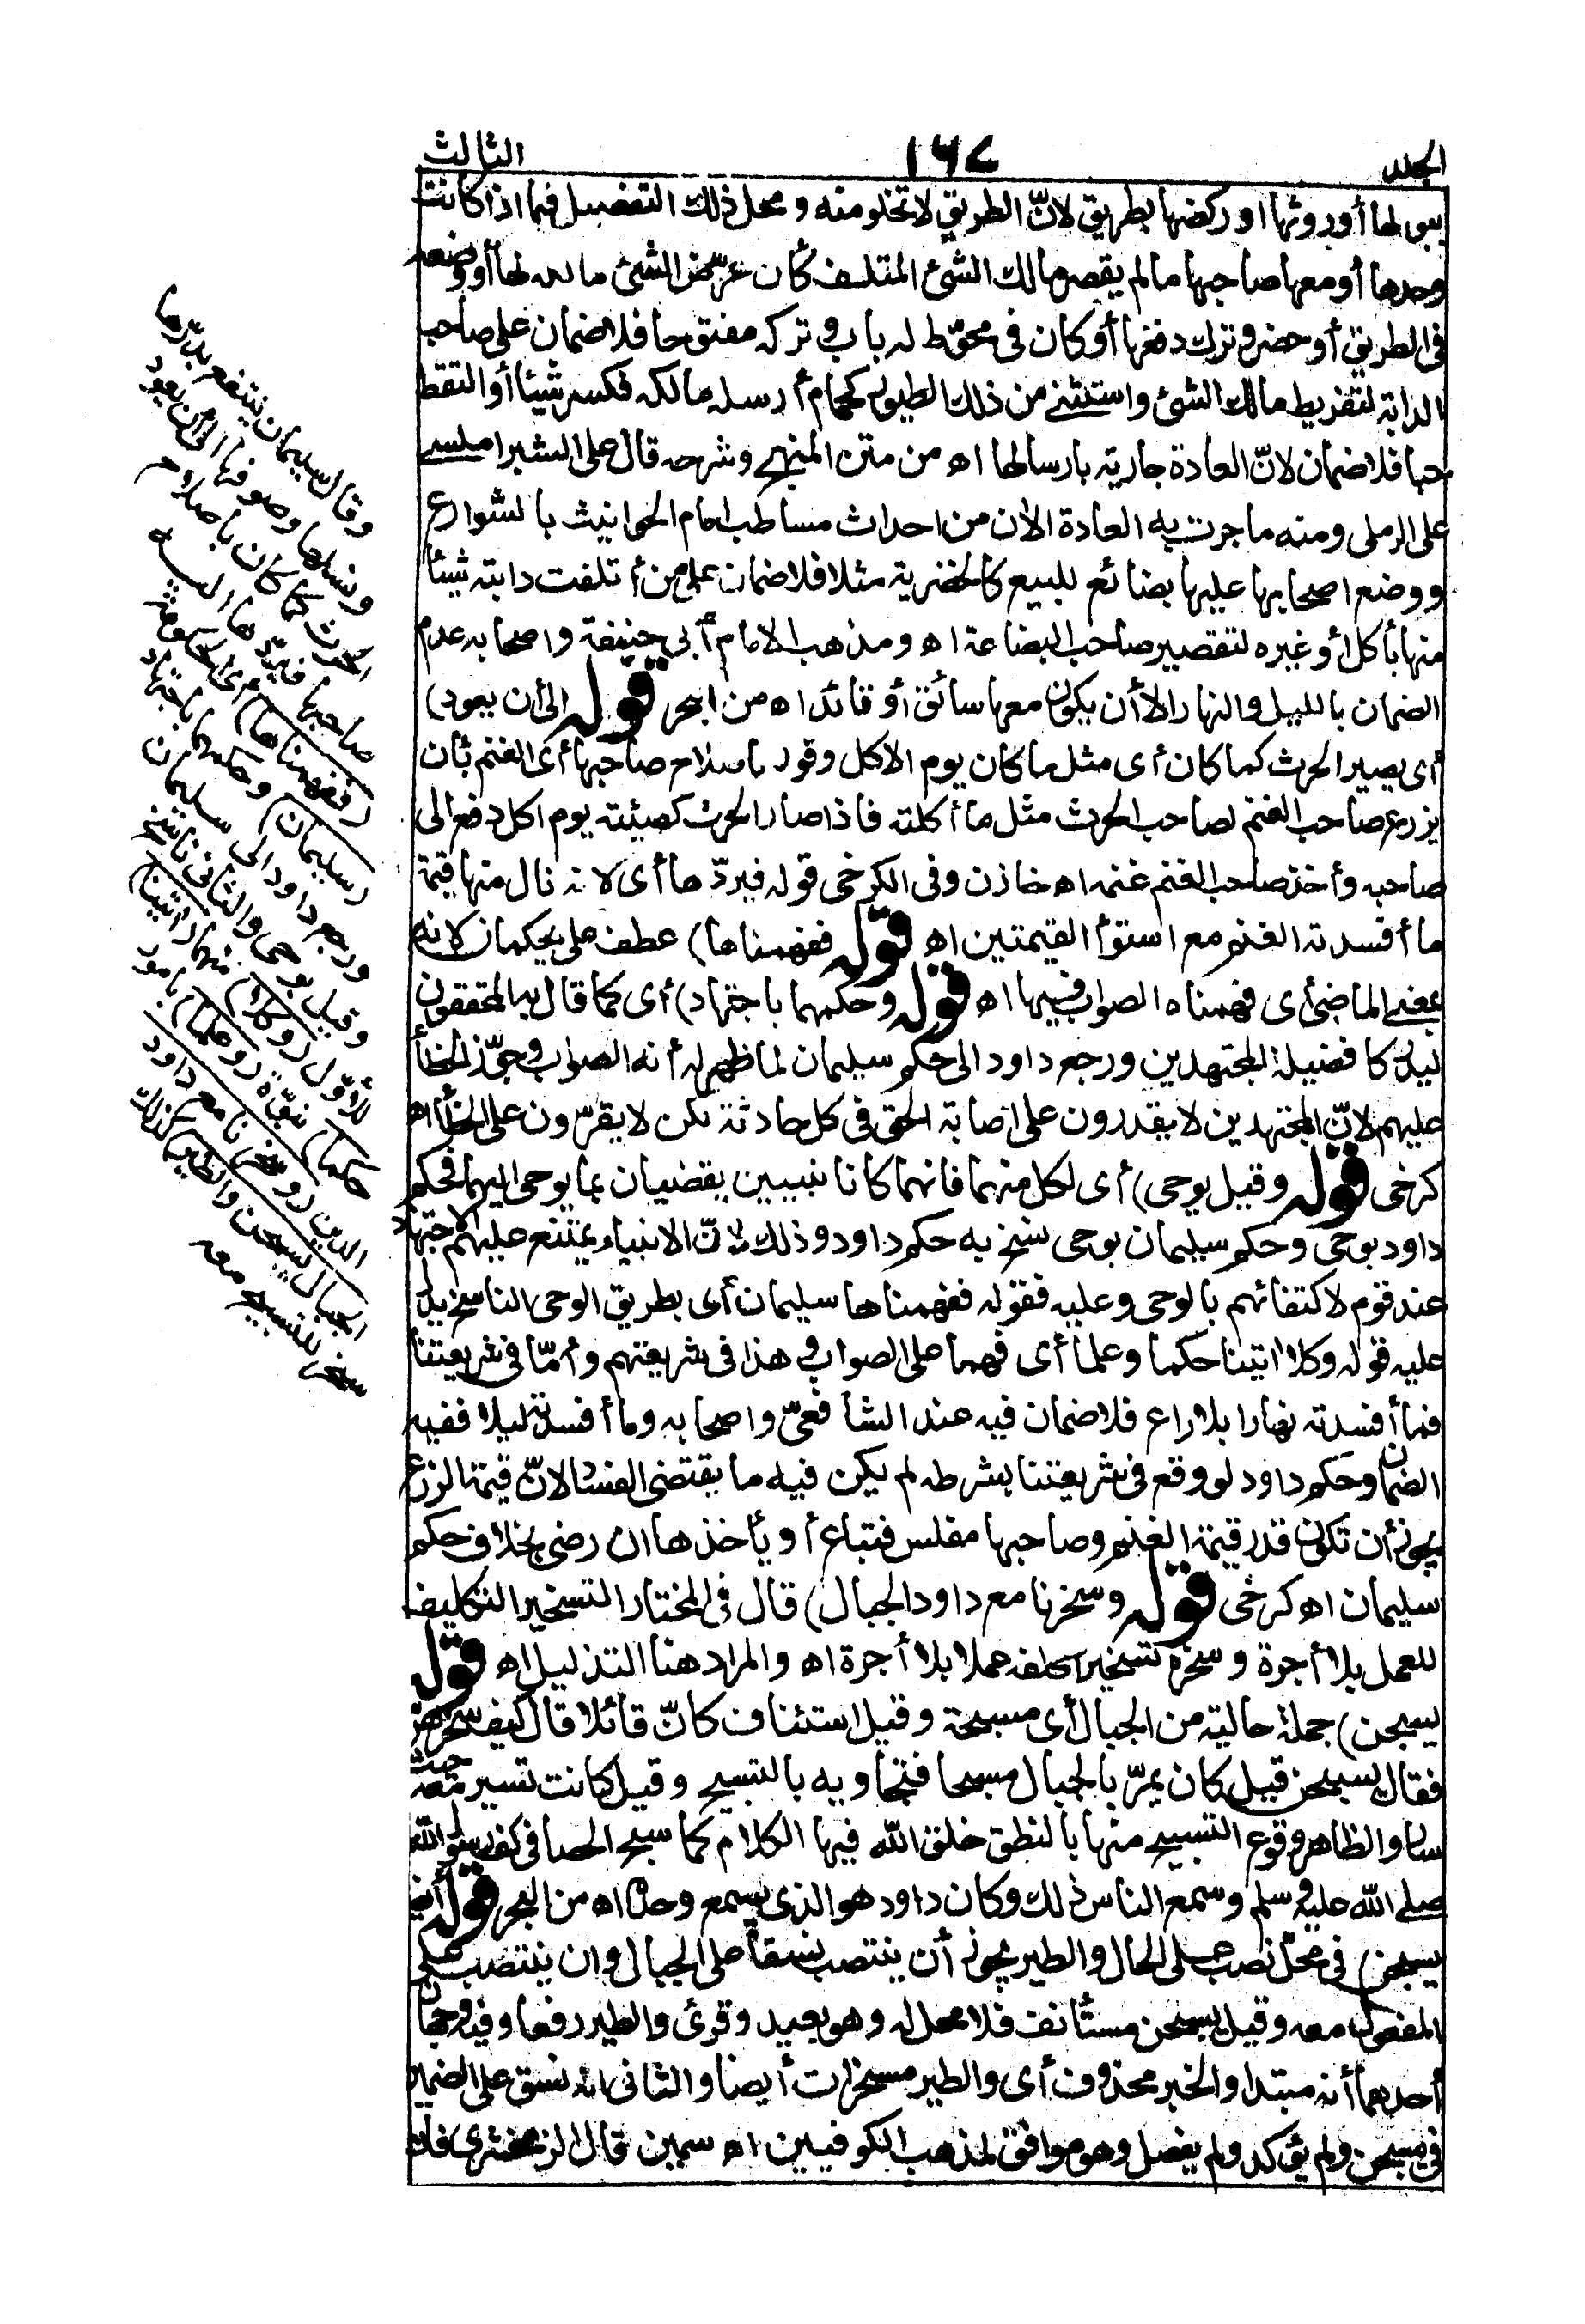 الجلد
١٦٧
الثالث
ببولها أو روثها او ركضها بطريق لانّ الطريق لا تخلو منه ومحل ذلك التفصيل فيما اذا كانت
وحدها أو معها صاحبها ما لم يقصر مالك الشئ المتلف كأن عرّض الشئ مالكه لها أو وضعه
فى الطريق أو حضر وترك دفعها أو كان فى محوّط له باب وتركه مفتوحا فلا ضمان على صاحب
الدابة لتفريط مالك الشئ واستثنى من ذلك الطيور كحمام أرسله مالكه فكسر شيئا أو التقط
حبا فلا ضمان لانّ العادة جارية بارسالها اه من متن المنهج وشرحه قال على الشبراملسى
على الرملى ومنه ما جرت به العادة الان من احداث مساطب امام الحوانيت بالشوارع
ووضع اصحابها عليها بضائع للبيع كالخضرية مثلا فلا ضمان على من أتلفت دابته شيئا
منها بأكل أو غيره لتقصير صاحب البضاعة اه ومذهب الامام أبى حنيفة واصحابه عدم
الضمان بالليل والنهار الا أن يكون معها سائق أو قائد اه من البحر قوله الى أن يعود)
أى يصير الحرث كما كان أى مثل ما كان يوم الاكل وقوله باصلاح صاحبها أى الغنم بأن
يزرع صاحب الغنم لصاحب الحرث مثل ما أكلته فاذا صار الحرث كهيئته يوم اكل دفع الى
صاحبه وأخذ صاحب الغنم غنمه اه خازن وفى الكرخى قوله فيردّها أى لانه نال منها قيمة
ما أفسدته الغنم مع استوأ القيمتين اه قوله ففهمناها) عطف على يحكمان لانه
بمعنى الماضى أى فهمناه الصواب فيها اه قوله وحكمهما باجتهاد) أى كما قال به المحققون
ليدركا فضيلة المجتهدين ورجع داود الى حكم سليمان لما ظهر له أنه الصواب وجوّز الخطأ
عليهم لانّ المجتهدين لا يقدرون على اصابة الحق فى كل حادثة لكن لا يقرّون على الخطأ اه
كرخى قوله وقيل بوحى) أى لكل منهما فانهما كانا نبيين يقضيان بما يوحى اليهما فحكم
داود بوحى وحكم سليمان بوحى نسخ به حكم داود وذلك لانّ الانبياء يمتنع عليهم الاجتهاد
عند قوم لاكتفائهم بالوحى وعليه فقوله ففهمناها سليمان أى بطريق الوحى الناسخ يدل
عليه قوله وكلا اتينا حكما وعلما أى فهما على الصواب وهذا فى شريعتهم وأمّا فى شريعتنا
فما أفسدته نهارا بلا راع فلا ضمان فيه عند الشافعىّ واصحابه وما أفسدته ليلا ففيه
الضمان وحكم داود لو وقع فى شريعتنا بشرطه لم يكن فيه ما يقتضى الفساد لانّ قيمة الزرع
يجوز أن تكون قدر قيمة الغنم وصاحبها مفلس فتباع أو يأخذها ان رضى بخلاف حكم
سليمان اه كرخى قوله وسخرنا مع داود الجبال) قال فى المختار التسخير التكليف
للعمل بلا أجرة وسخره تسخيرا كلفه عملا بلا أجرة اه والمراد هنا التذليل اه قوله
يسبحن) جملة حالية من الجبال أى مسبحة وقيل استئناف كانّ قائلا قال كيف سخرهن
فقال يسبحن قيل كان يمرّ بالجبال مسبحا فتجاوبه بالتسبيح وقيل كانت تسير معه حيث
سار والظاهر وقوع التسبيح منها بالنطق خلق الله فيها الكلام كما سبح الحصا فى كف رسول الله
صلى الله عليه وسلم وسمع الناس ذلك وكان داود هو الذى يسمع وحده اه من البحر قوله أيضا
يسبحن) فى محل نصب على الحال والطير يجوز أن ينتصب نسقا على الجبال وان ينتصب على
المفعول معه وقيل يسبحن مستأنف فلا محل له وهو بعيد وقرئ والطير رفعا وفيه وجهان
أحدهما أنه مبتدا والخبر محذوف أى والطير مسخرات أيضا والثانى انه نسق على الضمير
فى يسبحن ولم يؤكد ولم يفصل وهو موافق لمذهب الكوفيين اه سمين قال الزمخشرى فان
وقال سليمان ينتفع بدرها
ونسلها وصوفها الى أن يعود
الحرث كما كان باصلاح
صاحبها فيردّها اليه
(ففهمناها) أى الحكومة
(سليمان) وحكمهما باجتهاد
ورجع داود الى سليمان
وقيل بوحى والثانى ناسخ
للأوّل (وكلا) منهما (اتينا)
حكما) نبوّة (وعلما) بامور
الدين (وسخرنا مع داود
الجبال يسبحن والطير) كذلك
سخر للتسبيح معه